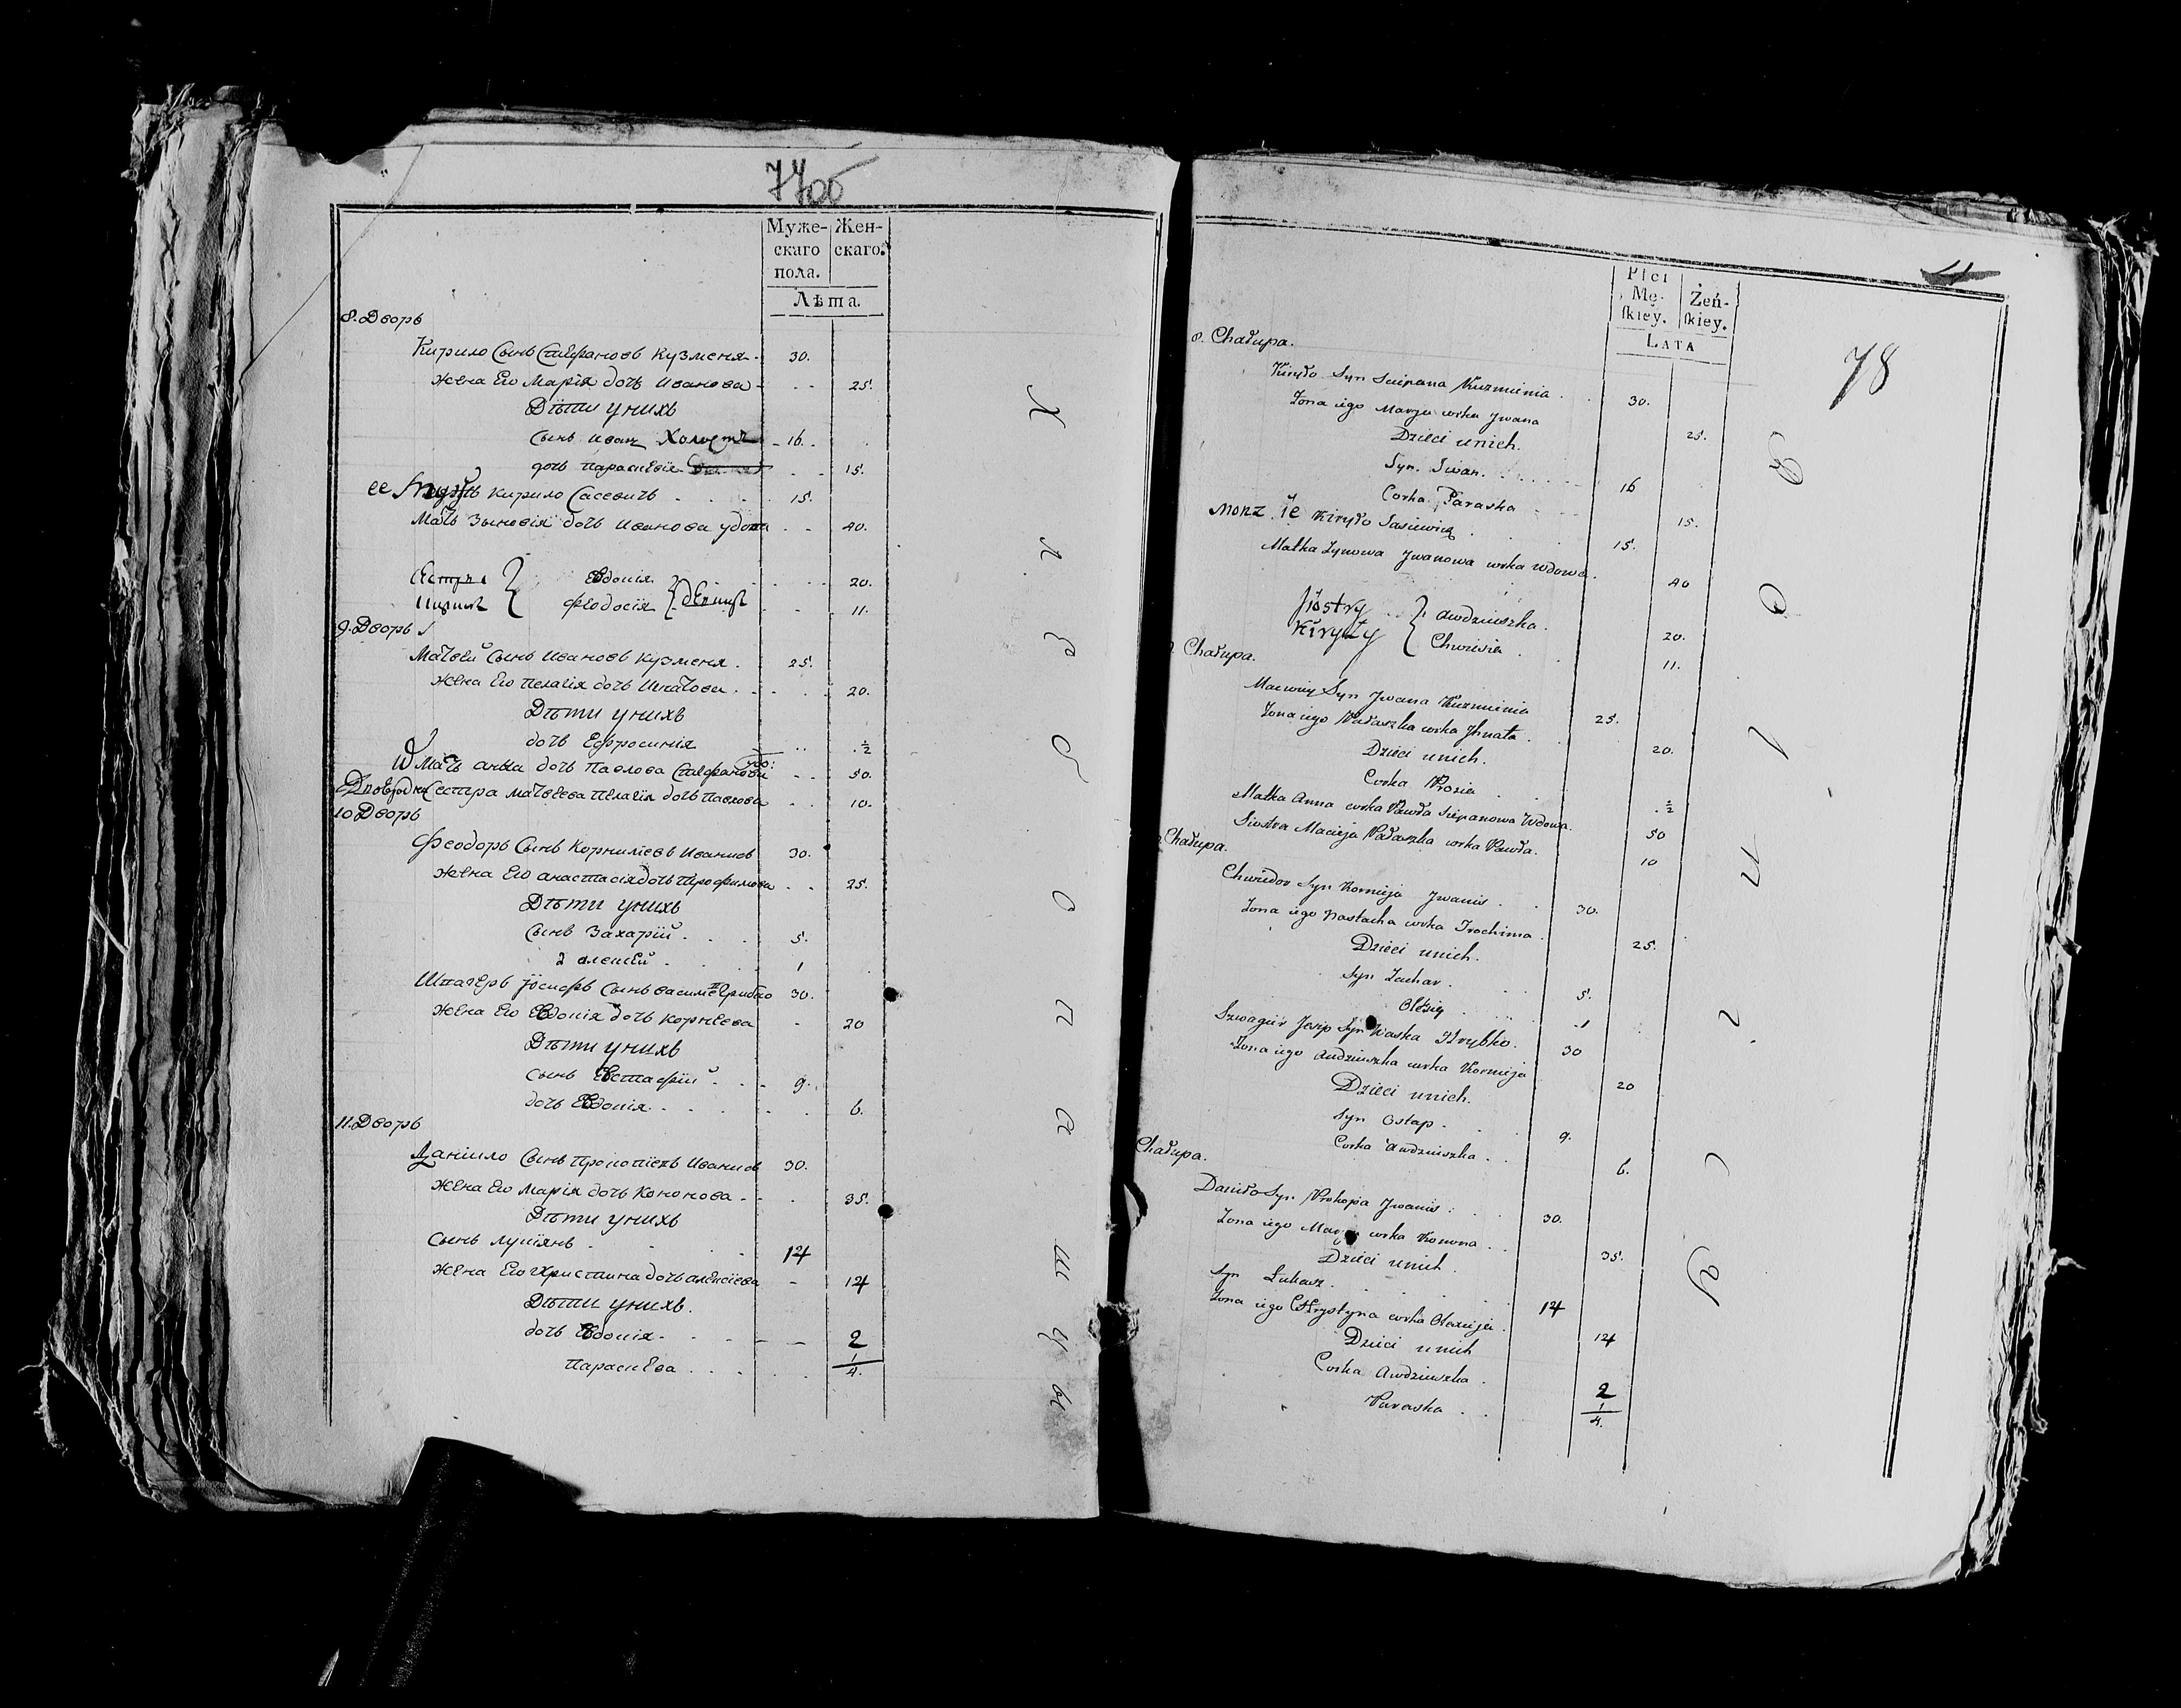 77об
Муже-
скаго
пола.
Жен-
скаго.
Лѣта.
8. Дворъ
Кирило Сынъ Стефановъ Кузменя 30.
жена Его Марія дочь Иванова 25.
Дѣти унихъ
Сынъ Иванъ Холостъ 16.
дочь Параскевія 15.
ее мужъ Кирило Сасевичъ 15.
Мать Зыновія дочь Иванова удова 40.
Сестры Евдокія 20.
Кирилы Феодосія девицы 11.
9. Дворъ
Матвей Сынъ Ивановъ Кузменя 25.
жена Его Пелагія дочь Игнатова 20.
Дѣти унихъ
дочь Ефросинія ½
Мать Анна дочь Павлова Стефанова удо: 50.
Сестра Матвеева Пелагія дочь Павлова 10.
10 Дворъ
Феодоръ Сынъ Корнилевъ Иванисъ 30.
жена Его Анастасія дочь Трофимова 25.
Дѣти унихъ
Сынъ Захарій 5.
2 Алексей 1
Шпагеръ Іосифъ Сынъ Василевъ Грибко 30.
жена Его Евдокія дочь Корнеева 20
Дѣти унихъ
Сынъ Евстафій 9.
дочь Евдокія 6.
11. Дворъ
Даніило Сынъ Прокопіевъ Иванисъ 30.
жена Его Марія дочь Кононова 35.
Дѣти унихъ
Сынъ Лукіянъ 14
жена Его Христина дочь Алексіева 14
Дѣти унихъ.
дочь Евдокія 2
Параскева ¼.
Хлебопашцы
Płci
Mę-
ſkiey.
Żeń-
ſkiey.
LATA
78
8. Chałupa.
Kiryło Syn Sciepana Kuzmienia 30.
Zona iego Marya corka Jwana 25.
Dzieci unich.
Syn. Iwan. 16
Corka Paraska 15.
Monz ie Kiryło Sasiewicz 15.
Matka Zynowa Jwanowa corka Wdowa. 40
Siostry Awdziuszka. 20.
Kiryły Chwiesia 11.
Chałupa.
Maciwiey Syn Jwana Kuzmienia 25.
Zona iego Pałaszka corka Jhnata. 20.
Dzieci unich.
Corka Prosia ½
Matka Anna corka Pawła Sciepanowa Wdowa. 50
Siostra Macieja Pałaszka corka Pawła. 10
Chałupa.
Chwiedor Syn Kornieja Jwanis. 30.
Zona iego Nastazha corka Trochima 25.
Dzieci unich.
Syn Zachar. 5.
Olexiey 1
Szwagier Jozip Syn Waska Hrybko. 30
Zona iego Awdziuszka corka Kornieja 20
Dzieci unich.
Syn Ostap. 9.
Corka Awdziuszka. 6.
Chałupa.
Daniło Syn. Prokopa Jwanis 30.
Zona iego Marya corka Konona. 35.
Dzieci unich
Syn Łukasz. 14
Zona iego Chrystyna corka Olexieja. 14
Dzieci unich
Corka Awdziuszka 2
Paraska ¼.
Rolnicy